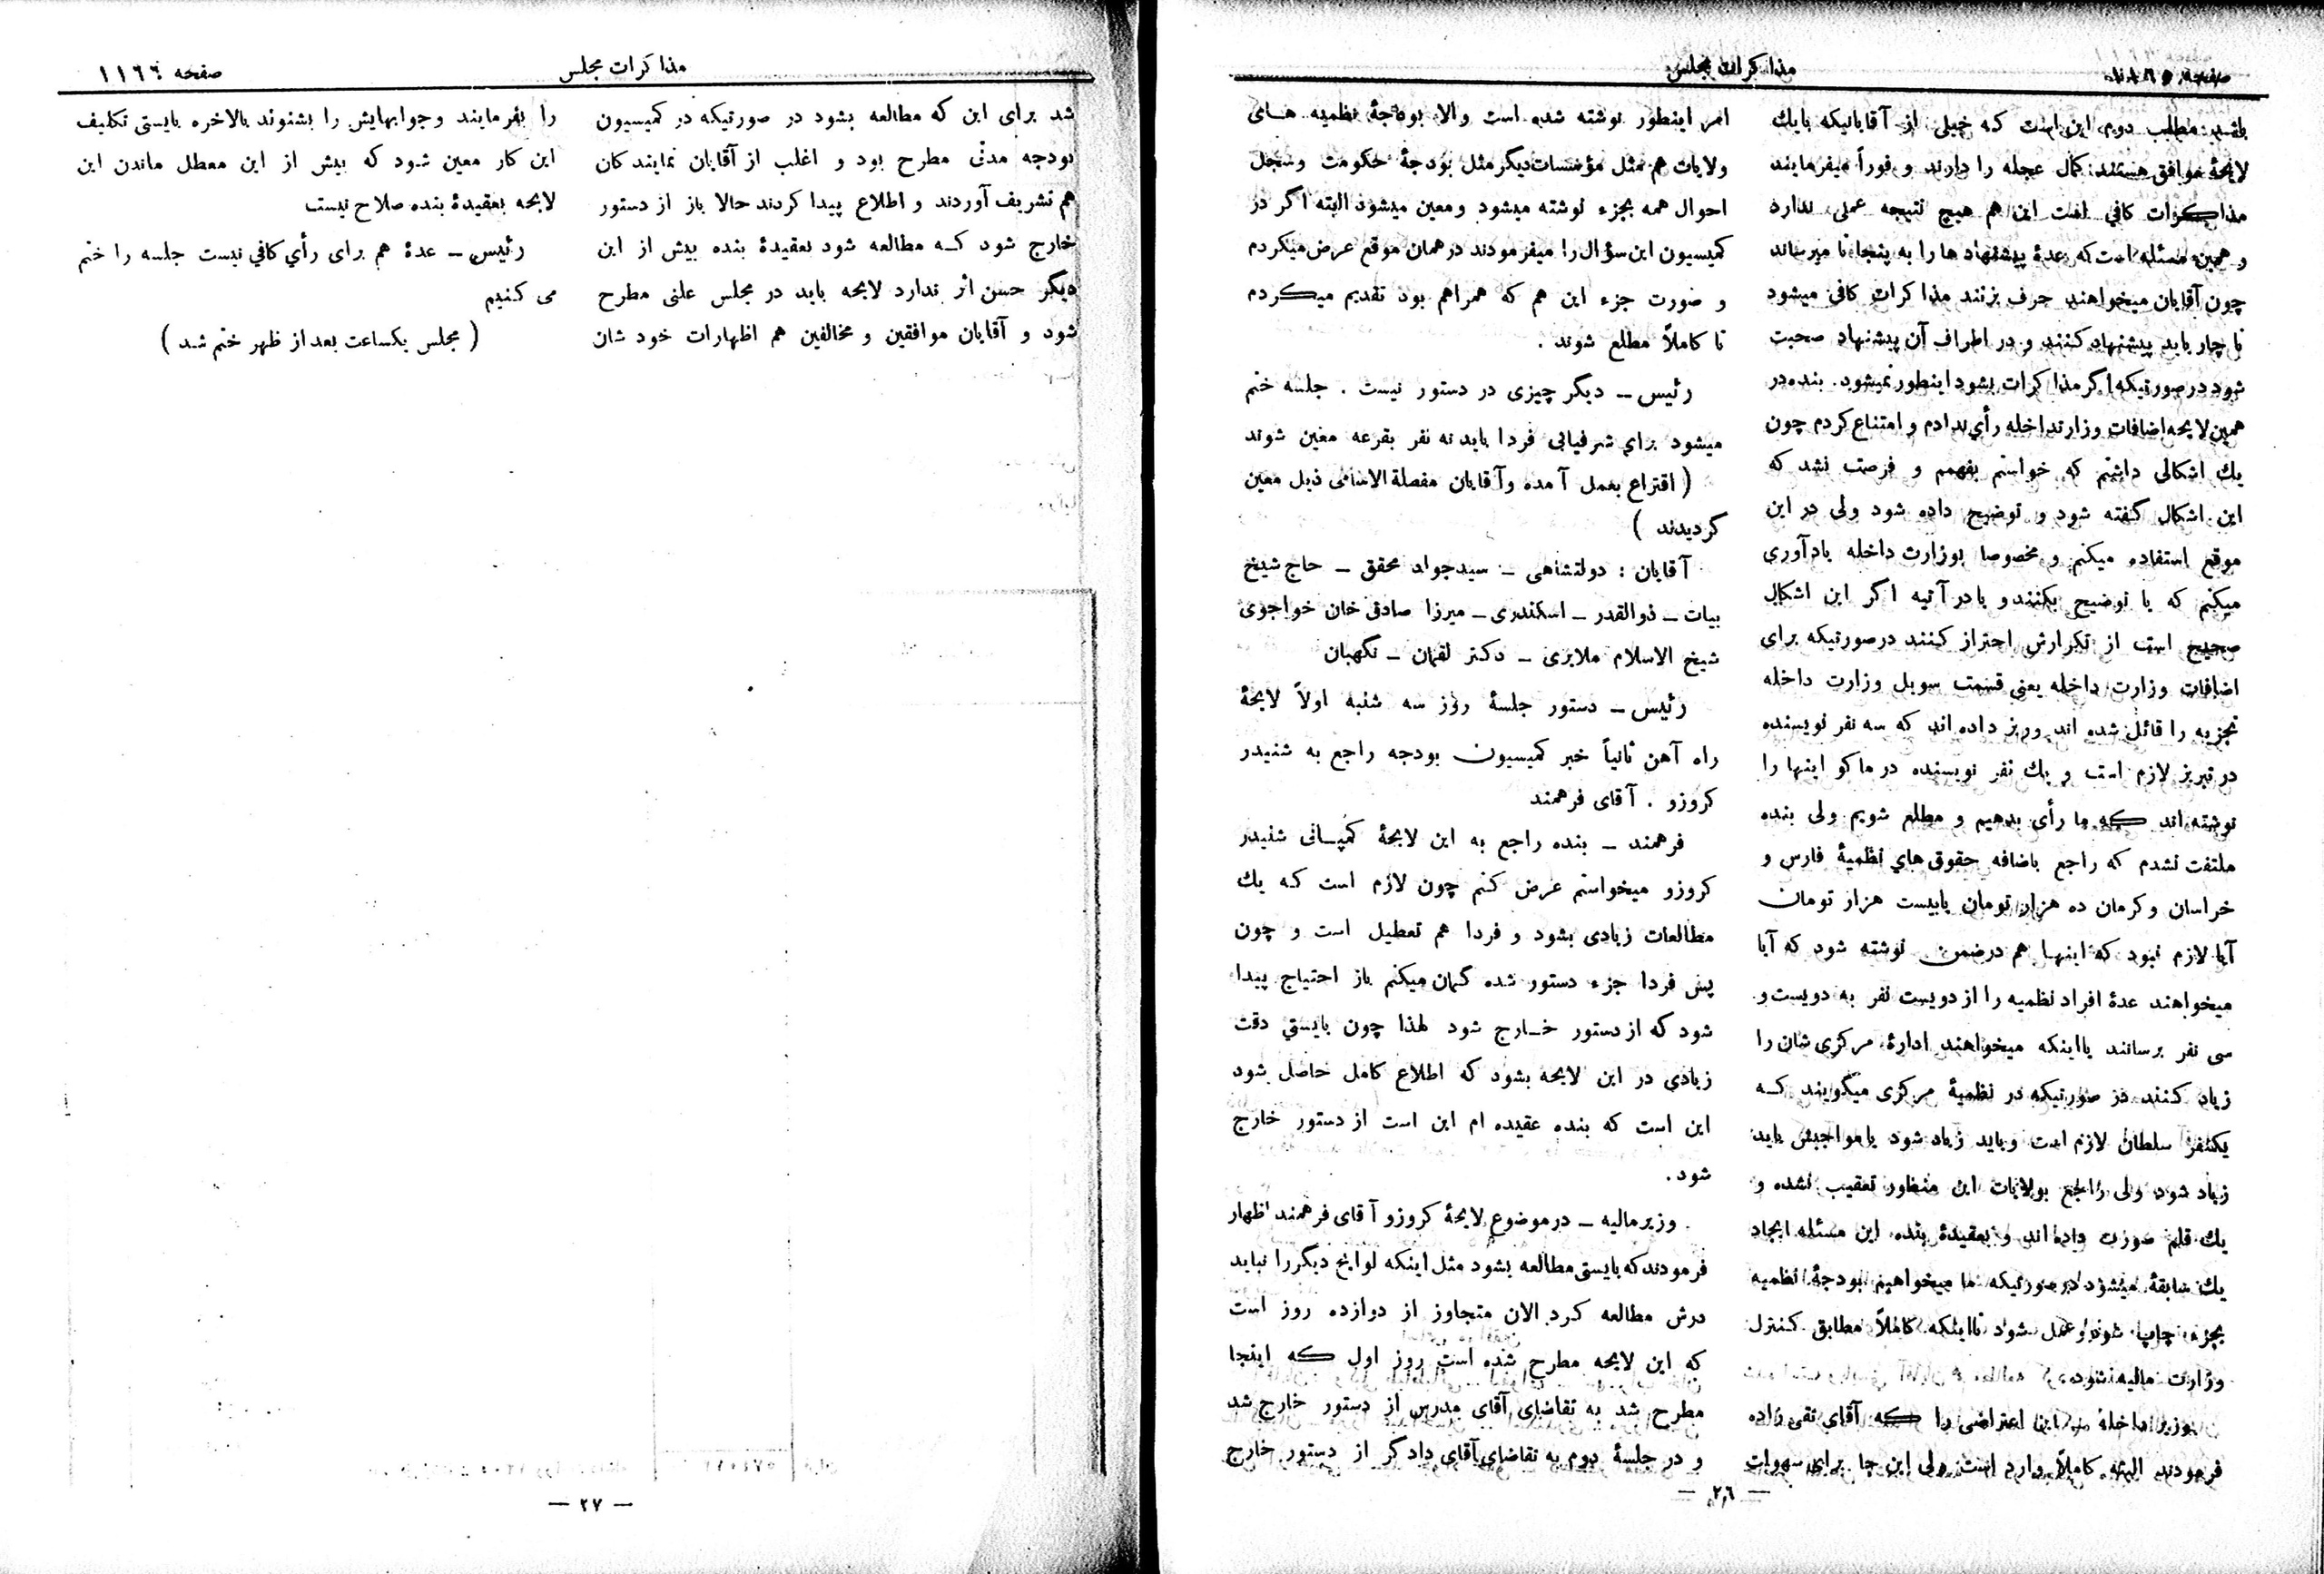 صفحه ۱۱۶۵
مذاکرات مجلس
باشید مطلب دوم این است که خیلی از آقایانیکه بایك
لایحهٔ موافق هستند کمال عجله را دارند و فوراً میفرمایند
مذاکرات کافي است این هم هیچ نتیجه عملی ندارد
و همین مسئله است که عدهٔ پیشنهاد ها را به پنجاه تا میرساند
چون آقایان میخواهند حرف بزنند مذاکرات کافی میشود
نا چار باید پیشنهاد کنند و در اطراف آن پیشنهاد صحبت
شود در صورتیکه اگر مذاکرات بشود اینطور نمیشود. بنده در
همین لایحه اضافات وزارتداخله رأي ندادم و امتناع کردم چون
یك اشکالی داشتم که خواستم بفهمم و فرصت نشد که
این اشکال گفته شود و توضیح داده شود ولی در این
موقع استفاده میکنم و مخصوصا بوزارت داخله یادآوری
میکنم که یا توضیح بکنند و یا در آتیه اگر این اشکال
صحیح است از تکرارش احتراز کنند درصورتیکه برای
اضافات وزارت داخله یعنی قسمت سویل وزارت داخله
تجزیه را قائل شده اند و ریز داده اند که سه نفر نویسنده
در تبریز لازم است و یك نفر نویسنده در ماکو اینها را
نوشته اند که ما رأی بدهیم و مطلع شویم ولی بنده
ملتفت نشدم که راجع باضافه حقوق هاي نظمیهٔ فارس و
خراسان و کرمان ده هزار تومان یابیست هزار تومان
آیا لازم نبود که اینها هم درضمن نوشته شود که آیا
میخواهند عدهٔ افراد نظمیه را از دویست نفر به دویست و
سی نفر برسانند یااینکه میخواهند ادارهٔ مرکزی شان را
زیاد کنند در صورتیکه در نظمیهٔ مرکزی میگویند که
یکنفر سلطان لازم است و باید زیاد شود یا مواجبش باید
زیاد شود ولی راجع بولایات این منظور تعقیب نشده و
یك قلم صورت داده اند و بعقیدهٔ بنده این مسئله ایجاد
یك سابقهٔ میشود در صورتیکه ما میخواهیم بودجهٔ نظمیه
بجزء چاپ شود و عمل شود تااینکه کاملاً مطابق کنترل
وزارت مالیه بشود
وزیر داخله ـ این اعتراضی را که آقاي تقی زاده
فرمودند البته کاملاً وارد است ولی این جا برای سهولت
امر اینطور نوشته شده است والا بودجهٔ نظمیه های
ولایات هم مثل مؤسسات دیگر مثل بودجهٔ حکومت و سجل
احوال همه بجزء نوشته میشود و معین میشود البته اگر در
کمیسیون این سؤال را میفرمودند در همان موقع عرض میکردم
و صورت جزء این هم که همراهم بود تقدیم میکردم
تا کاملاً مطلع شوند .
رئیس ـ دیگر چیزی در دستور نیست . جلسه ختم
میشود براي شرفیابی فردا باید نه نفر بقرعه معین شوند
( اقتراع بعمل آمده و آقایان مفصلة الاسامی ذیل معین
گردیدند )
آقایان : دولتشاهی ـ سید جواد محقق ـ حاج شیخ
بیات ـ ذوالقدر ـ اسکندری ـ میرزا صادق خان خواجوی
شیخ الاسلام ملایری ـ دکتر لقمان ـ نگهبان
رئیس ـ دستور جلسهٔ روز سه شنبه اولاً لایحهٔ
راه آهن ثانیاً خبر کمیسیون بودجه راجع به شنیدر
کروزو . آقای فرهمند
فرهمند ـ بنده راجع به این لایحهٔ کمپانی شنیدر
کروزو میخواستم عرض کنم چون لازم است که یك
مطالعات زیادی بشود و فردا هم تعطیل است و چون
پس فردا جزء دستور شده گمان میکنم باز احتیاج پیدا
شود که از دستور خارج شود لهذا چون بایستي دقت
زیادی در این لایحه بشود که اطلاع کامل حاصل شود
این است که بنده عقیده ام این است از دستور خارج
شود .
وزیر مالیه ـ در موضوع لایحهٔ کروزو آقای فرهمند اظهار
فرمودند که بایستی مطالعه بشود مثل اینکه لوایح دیگر را نباید
درش مطالعه کرد الان متجاوز از دوازده روز است
که این لایحه مطرح شده است روز اول که اینجا
مطرح شد به تقاضای آقای مدرس از دستور خارج شد
و در جلسهٔ دوم به تقاضای آقای دادگر از دستور خارج
— ۲۶ —
صفحه ۱۱۶۶
مذاکرات مجلس
شد برای این که مطالعه بشود در صورتیکه در کمیسیون
بودجه مدتی مطرح بود و اغلب از آقایان نمایندگان
هم تشریف آوردند و اطلاع پیدا کردند حالا باز از دستور
خارج شود که مطالعه شود بعقیدهٔ بنده بیش از این
دیگر حسن اثر ندارد لایحه باید در مجلس علنی مطرح
شود و آقایان موافقین و مخالفین هم اظهارات خود شان
را بفرمایند و جوابهایش را بشنوند بالاخره بایستی تکلیف
این کار معین شود که بیش از این معطل ماندن این
لایحه بعقیدهٔ بنده صلاح نیست
رئیس ـ عدهٔ هم برای رأي کافي نیست جلسه را ختم
می کنیم
( مجلس یکساعت بعد از ظهر ختم شد )
— ۲۷ —